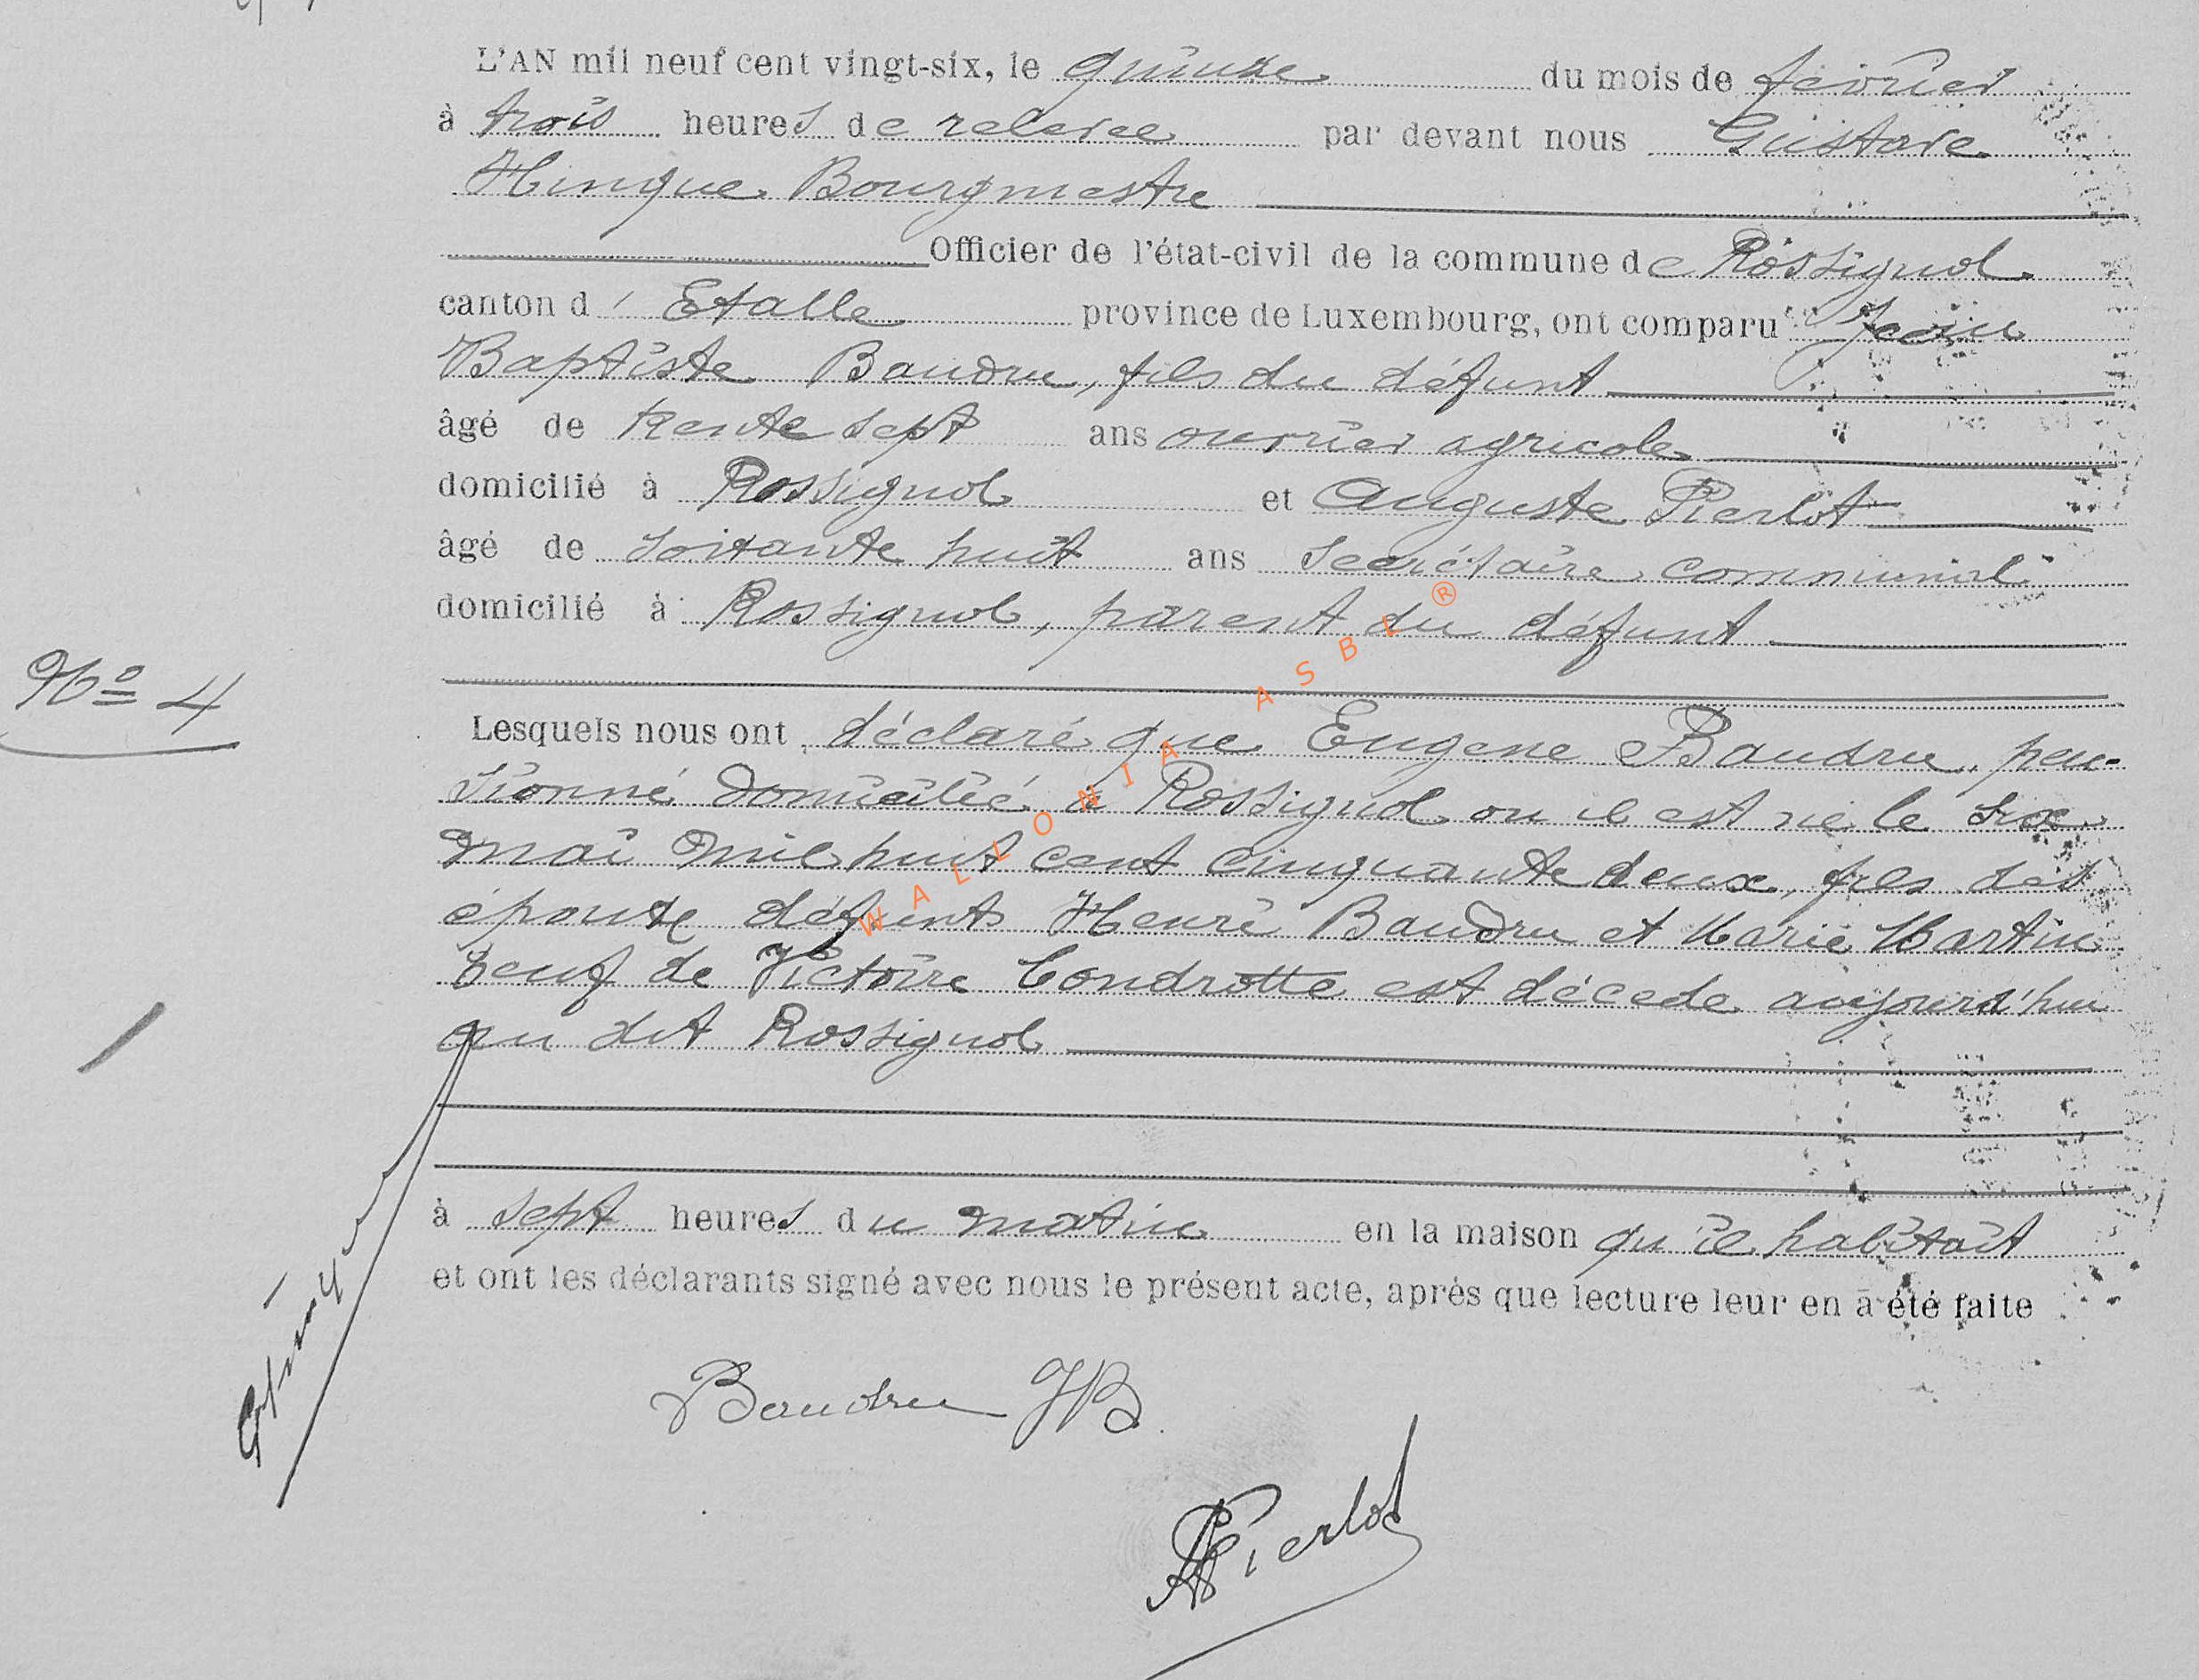 L'AN mil neuf cent vingt-six, le quinze du mois de février
à trois heures de relevée par devant nous Gustave
Hinque Bourgmestre
Officier de l'état-civil de la commune de Rossignol
canton d' Etalle province de Luxembourg, ont comparu Jean
Baptiste Baudru, fils du défunt
âgé de trente sept ans ouvrier agricole
domicilié à Rossignol et Auguste Pierlot
âgé de soixante huit ans Secrétaire communal
domicilié à Rossignol, parent du défunt
No 4
Lesquels nous ont déclaré que Eugene Baudru, pen-
sionné domicilié à Rossignol ou il est né le six
mai mil huit cent cinquante deux, fils des
époux défunts Henri Baudru et Marie Martin
veuf de Victoire Condrotte est décédé aujourd'hui
au dit Rossignol
à sept heures du matin en la maison qu'il habitait
et ont les déclarants signé avec nous le présent acte, après que lecture leur en a été faite
Baudru JB
APierlot
WALLONIA ASBL ®